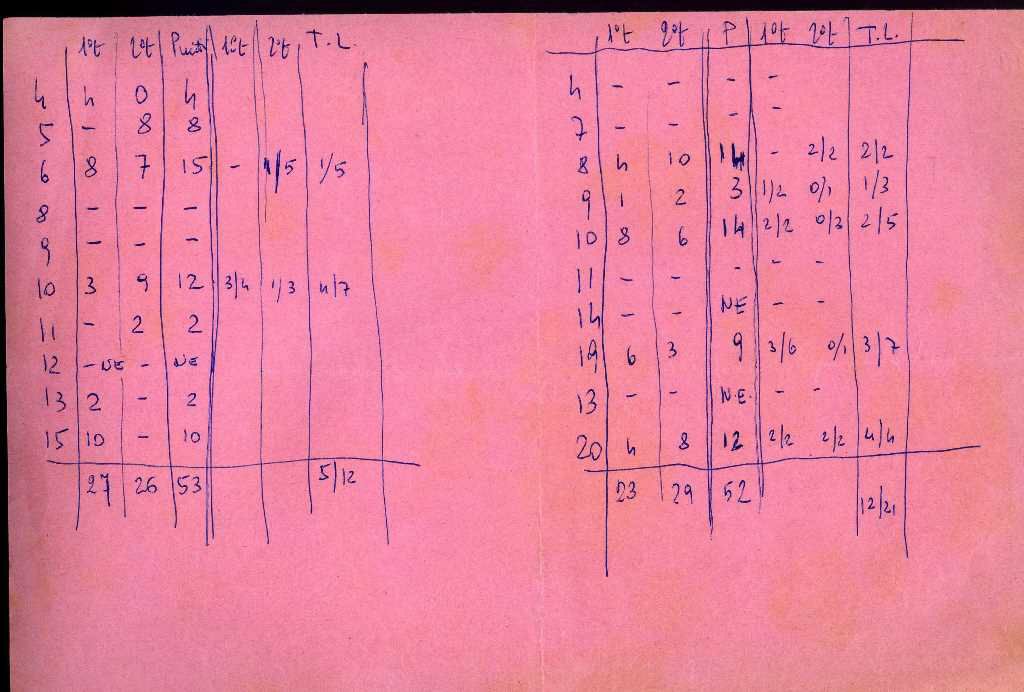 1°t 2°t Punti 1°t 2°t T.L.
4 4 0 4
5 – 8 8
6 8 7 15 – 1/5 1/5
8 – – –
9 – – –
10 3 9 12 3/4 1/3 4/7
11 – 2 2
12 – NE – NE
13 2 – 2
15 10 – 10
27 26 53 5/12
1°t 2°t P 1°t 2°t T.L.
4 – – – –
7 – – – –
8 4 10 14 – 2/2 2/2
9 1 2 3 1/2 0/1 1/3
10 8 6 14 2/2 0/3 2/5
11 – – – – –
14 – – NE – –
19 6 3 9 3/6 0/1 3/7
13 – – N.E. – –
20 4 8 12 2/2 2/2 4/4
23 29 52 12/21